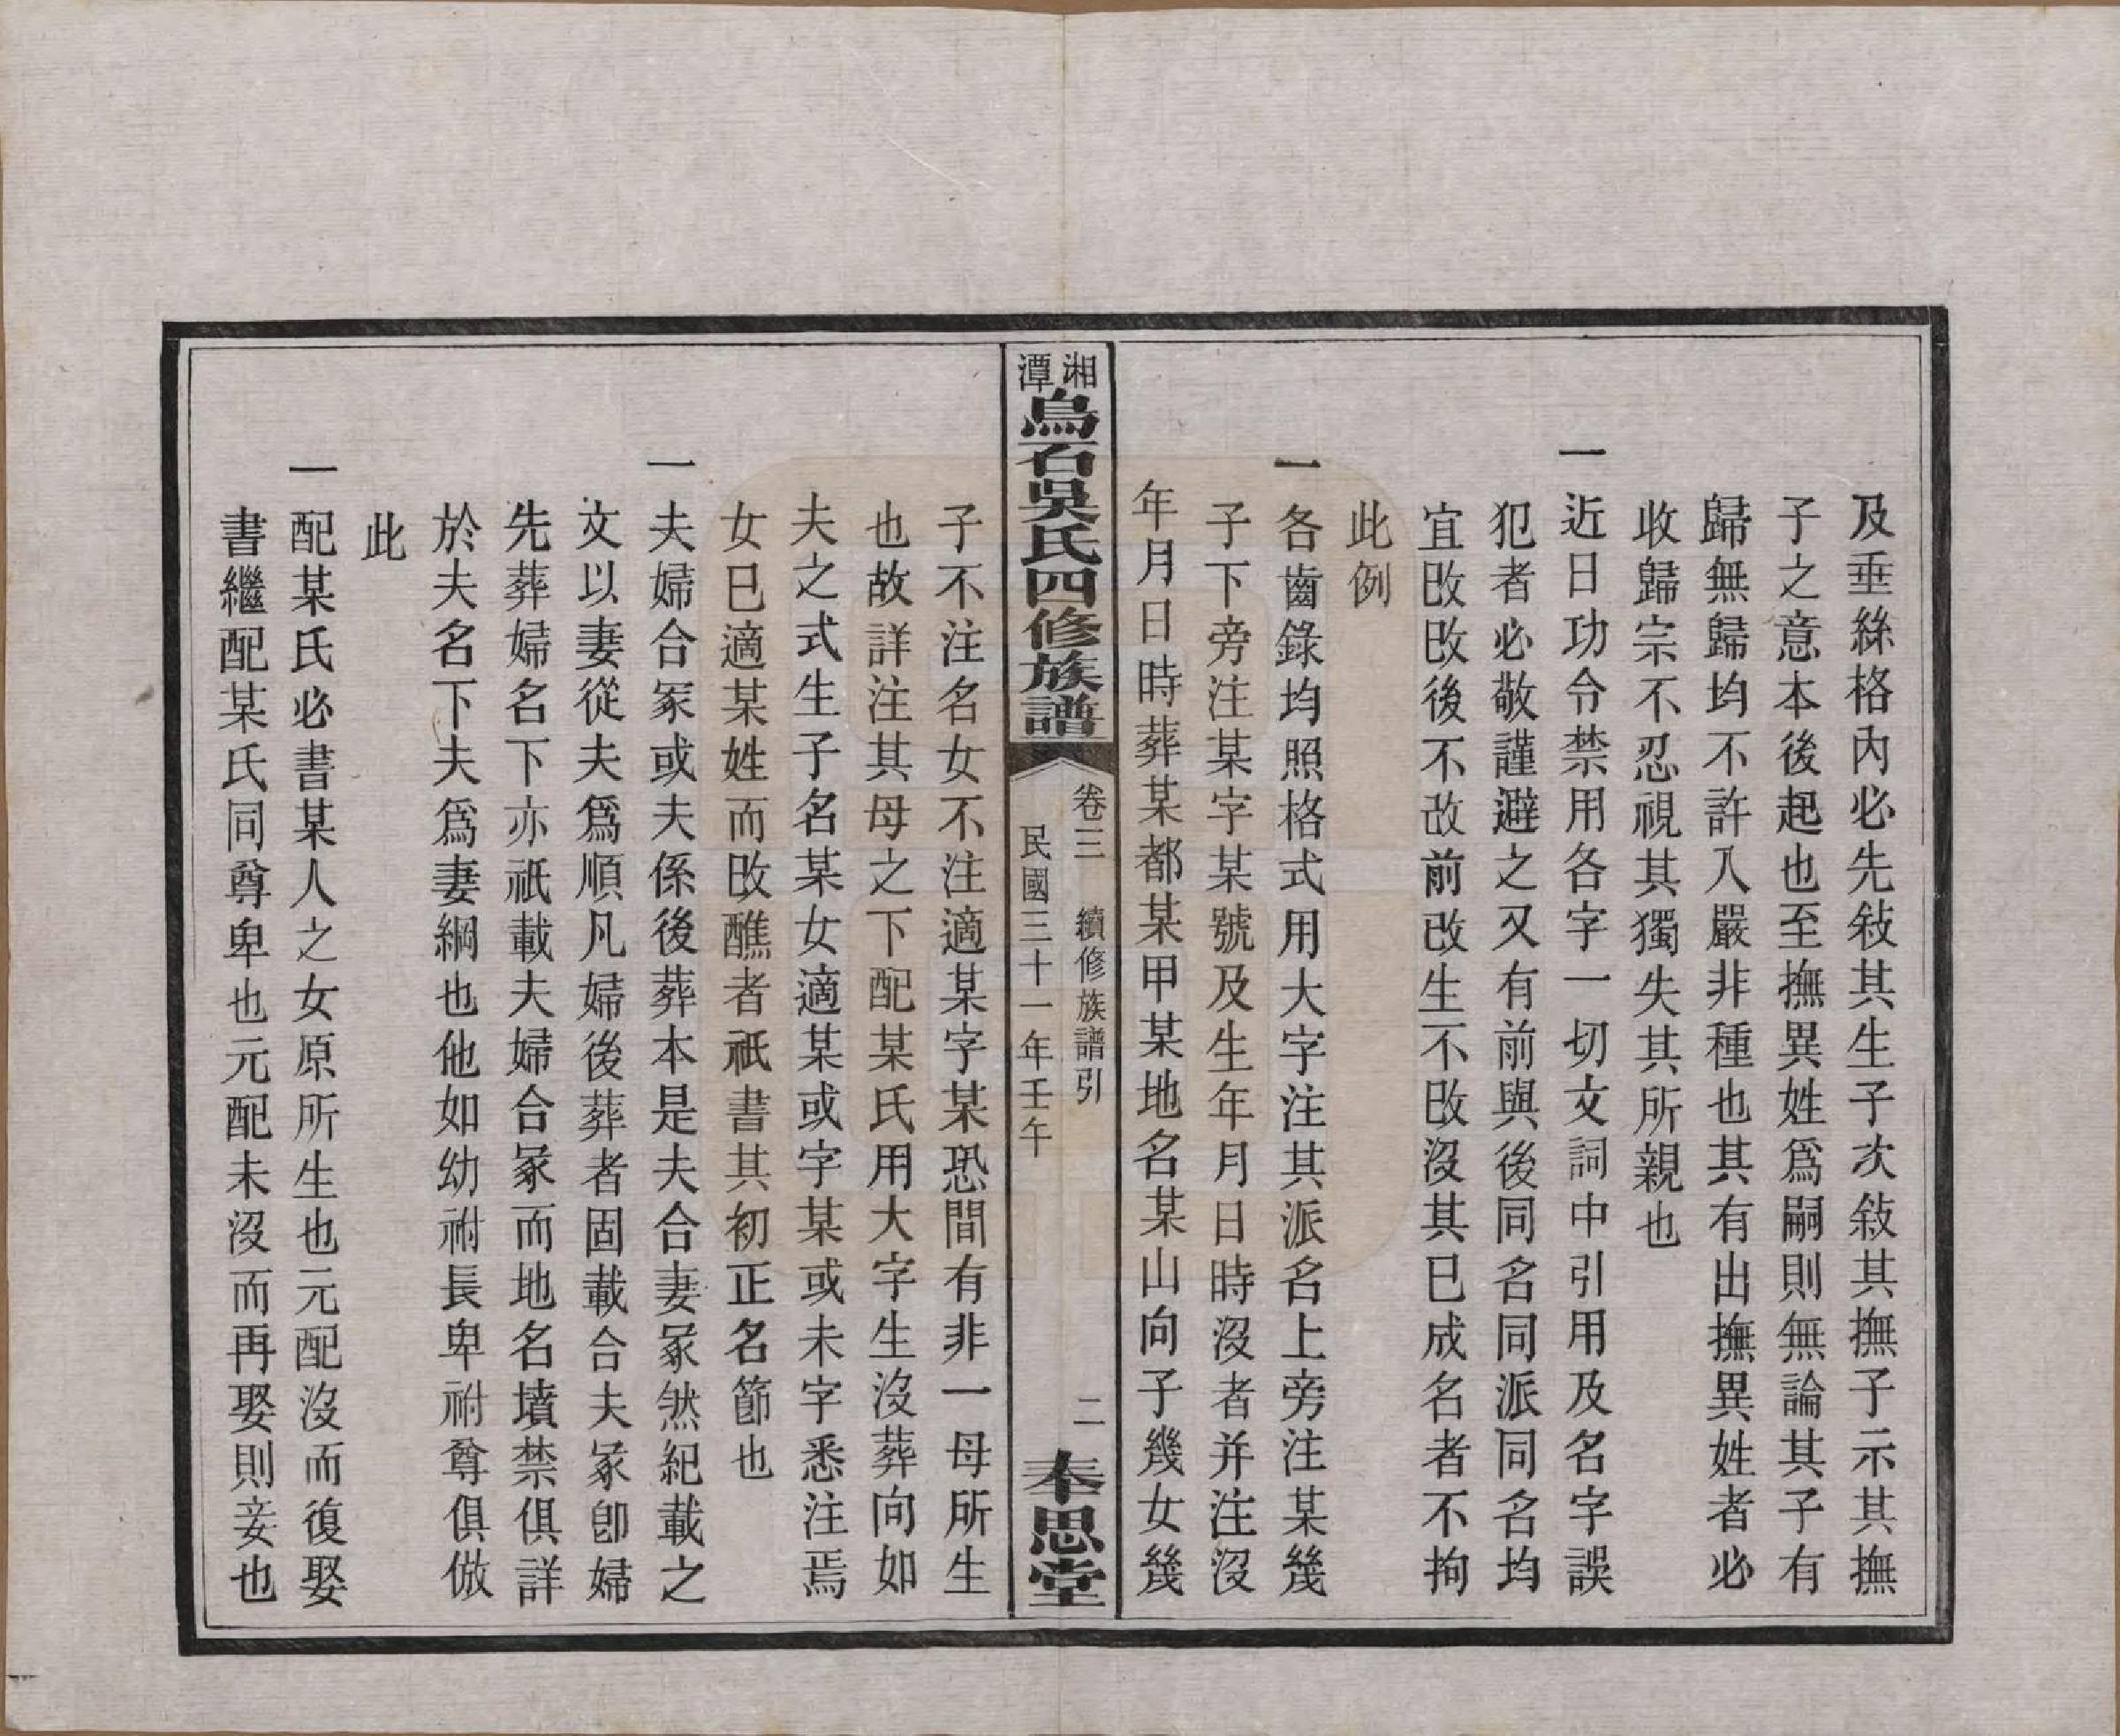 及垂絲格內必先敍其生子次敍其撫子示其撫
子之意本後起也至撫異姓爲嗣則無論其子有
歸無歸均不許入嚴非種也其有出撫異姓者必
收歸宗不忍視其獨失其所親也
一近日功令禁用各字一切文詞中引用及名字誤
犯者必敬謹避之又有前與後同名同派同名均
宜改改後不改前改生不改沒其已成名者不拘
此例
一各齒錄均照格式用大字注其派名上旁注某幾
子下旁注某字某號及生年月日時沒者并注沒
年月日時葬某都某甲某地名某山向子幾女幾
湘潭烏石吳氏四修族譜
卷三 續修族譜引 二
民國三十一年壬午
奉思堂
子不注名女不注適某字某恐間有非一母所生
也故詳注其母之下配某氏用大字生沒葬向如
夫之式生子名某女適某或字某或未字悉注焉
女已適某姓而改醮者祇書其初正名節也
一夫婦合冢或夫係後葬本是夫合妻冢然紀載之
文以妻從夫爲順凡婦後葬者固載合夫冢卽婦
先葬婦名下亦祇載夫婦合冢而地名墳禁俱詳
於夫名下夫爲妻綱也他如幼祔長卑祔尊俱倣
此
一配某氏必書某人之女原所生也元配沒而復娶
書繼配某氏同尊卑也元配未沒而再娶則妾也